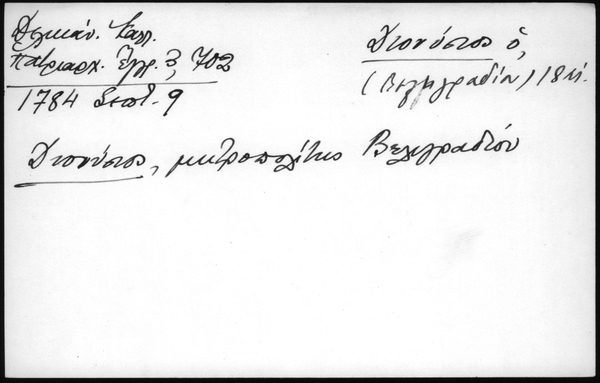 Δελικάν. Καλλ.
Πατριαρχ. Ἔγγρ. 3, 702
1784 Σεπτ. 9
Διονύσιος ὁ,
(Βελιγραδίου) 18 αι.
Διονύσιος, μητροπολίτης Βελιγραδίου